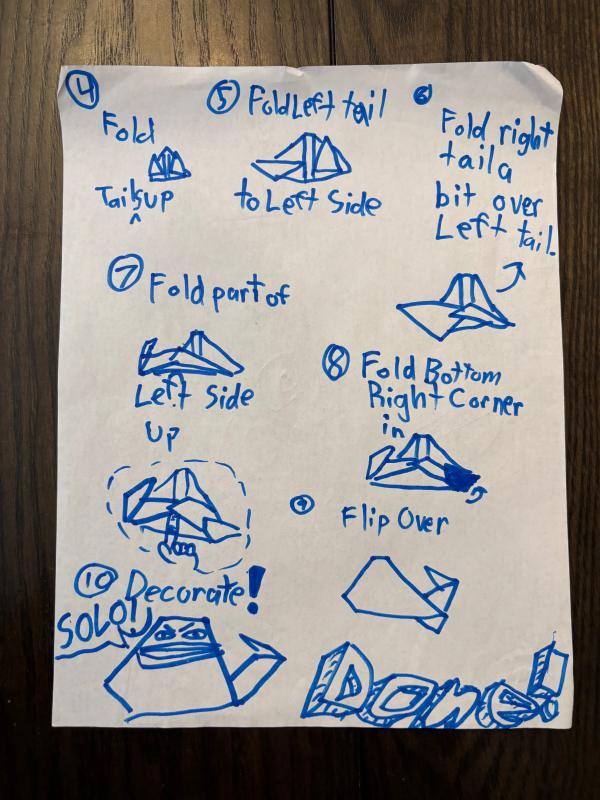 4
Fold
Tailsup
5 Fold Left tail
to Left Side
6
Fold right
tail a
bit over
Left tail.
7 Fold part of
Left Side
Up
8 Fold Bottom
Right Corner
in
9
Flip Over
10 Decorate!
SOLO!
Done!